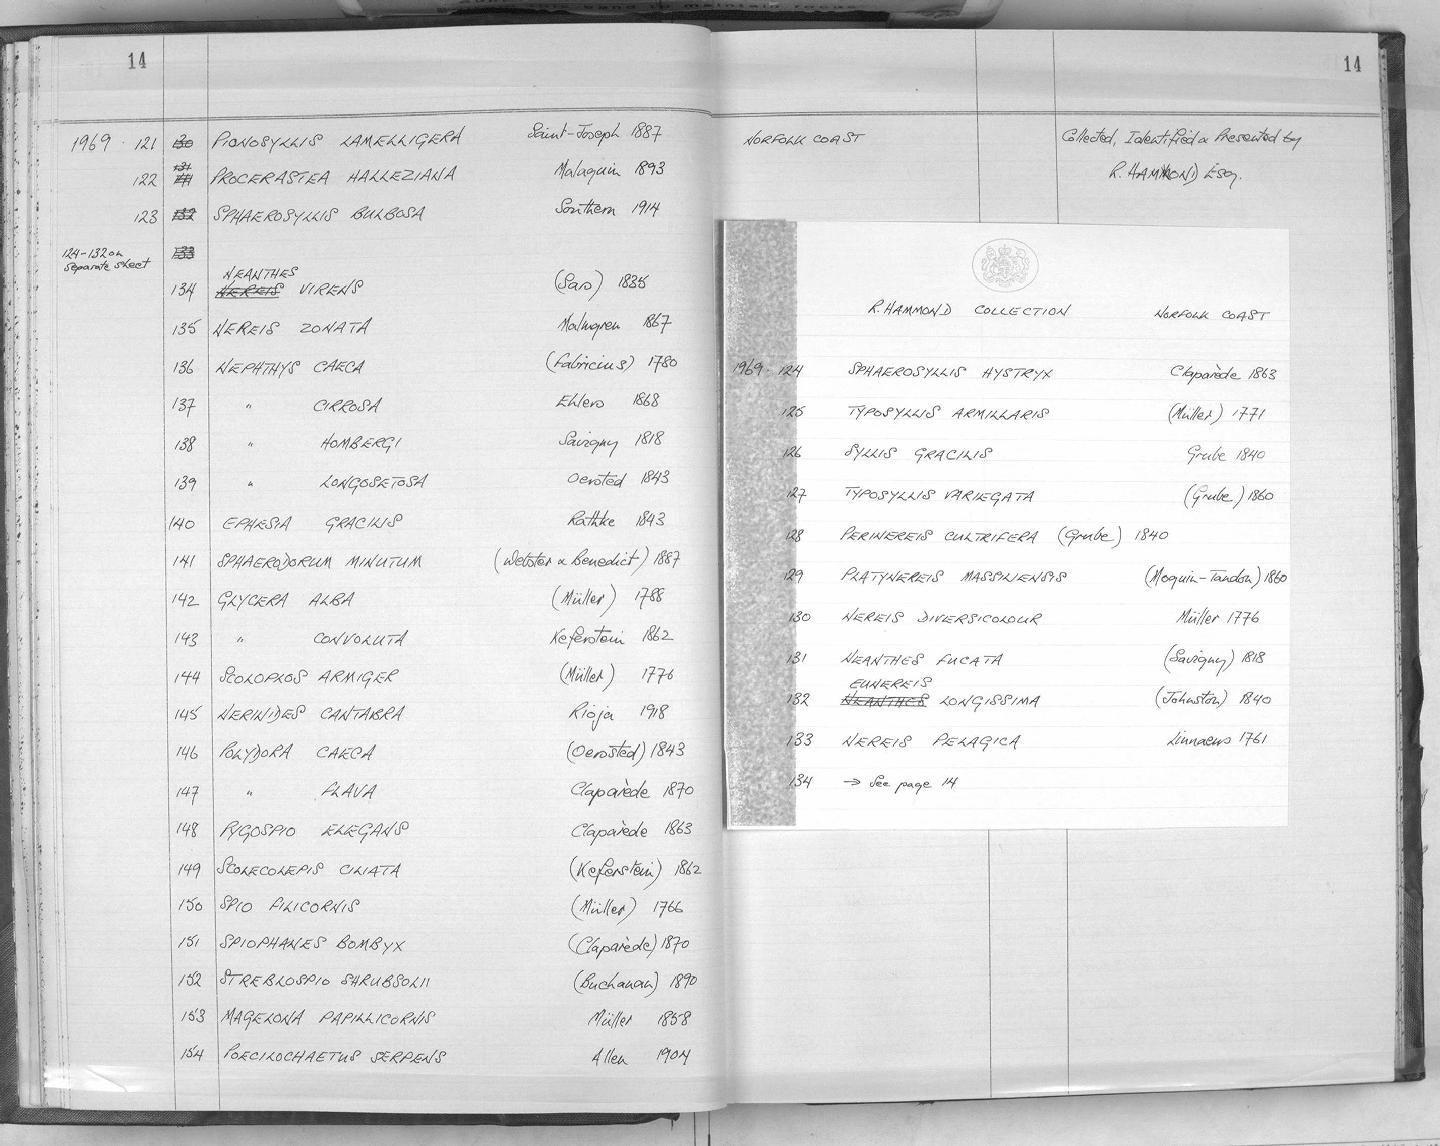 14
1969 · 121 PIONOSYLLIS LAMELLIGERA Saint-Joseph 1887
122 PROCERASTEA HALLEZIANA Malaquin 1893
123 132 SPHAEROSYLLIS BULBOSA Southern 1914
124-132 on 133
separate sheet
NEANTHES
134 NEREIS VIRENS (Sars) 1835
135 NEREIS ZONATA Malmgren 1867
136 NEPHTHYS CAECA (Fabricius) 1780
137 " CIRROSA Ehlers 1868
138 " HOMBERGI Savigny 1818
139 " LONGOSETOSA Oersted 1843
140 EPHESIA GRACILIS Rathke 1843
141 SPHAERODORUM MINUTUM (Webster & Benedict) 1887
142 GLYCERA ALBA (Müller) 1788
143 " CONVOLUTA Keferstein 1862
144 SCOLOPLOS ARMIGER (Müller) 1776
145 NERINIDES CANTABRA Rioja 1918
146 POLYDORA CAECA (Oersted) 1843
147 " FLAVA Claparède 1870
148 PYGOSPIO ELEGANS Claparède 1863
149 SCOLECOLEPIS CILIATA (Keferstein) 1862
150 SPIO FILICORNIS (Müller) 1766
151 SPIOPHANES BOMBYX (Claparède) 1870
152 STREBLOSPIO SHRUBSOLII (Buchanan) 1890
153 MAGELONA PAPILLICORNIS Müller 1858
154 POECILOCHAETUS SERPENS Allen 1904
14
NORFOLK COAST Collected, Identified & Presented by
R. HAMMOND Esq.
R. HAMMOND COLLECTION NORFOLK COAST
1969 · 124 SPHAEROSYLLIS HYSTRYX Claparède 1863
125 TYPOSYLLIS ARMILLARIS (Müller) 1771
126 SYLLIS GRACILIS Grube 1840
127 TYPOSYLLIS VARIEGATA (Grube) 1860
128 PERINEREIS CULTRIFERA (Grube) 1840
129 PLATYNEREIS MASSILIENSIS (Moquin-Tandon) 1860
130 NEREIS DIVERSICOLOUR Müller 1776
131 NEANTHES FUCATA (Savigny) 1818
EUNEREIS
132 NEANTHES LONGISSIMA (Johnston) 1840
133 NEREIS PELAGICA Linnaeus 1761
134 → See page 14